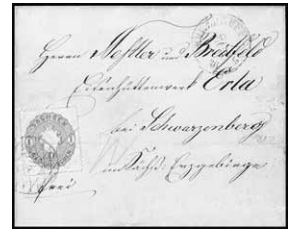 Herren Nestler und Breitfeld
Eisenhüttenwerk Erla
bei Schwarzenberg
im Sächs: Erzgebirge
frei